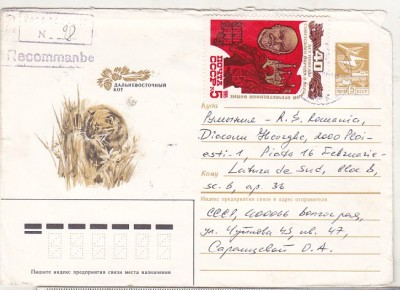 N 98
Recommanbe
ДАЛЬНЕВОСТОЧНЫЙ
КОТ
ПОЧТА
СССР
5
СССР
Куда
Румыния - R.S. Romania,
Diaconu Gheorghe, 2000 Ploi-
esti-1, Piata 16 Februarie-
Кому
Latura de Sud, bloc B,
sc. B, ap. 36
Индекс предприятия связи и адрес отправителя
СССР, 400066 Волгоград,
ул. Чуйкова 43 кв. 47,
Саранцевой О. А.
Пишите индекс предприятия связи места назначения